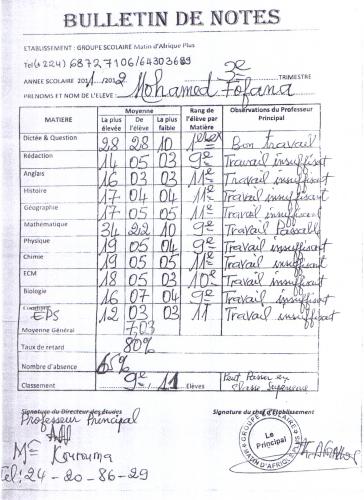 BULLETIN DE NOTES
ETABLISSEMENT : GROUPE SCOLAIRE Matin d'Afrique Plus
Tel (+224) 68727106/64303689
3e
ANNEE SCOLAIRE 2011/2012 TRIMESTRE
PRENOMS ET NOM DE L'ELEVE : Mohamed Fofana
MATIERE La plus élevée Moyenne De l'élève La plus faible Rang de l'élève par Matière Observations du Professeur Principal
Dictée & Question 28 28 10 1er ex Bon travail
Rédaction 14 05 03 9e Travail insuffisant
Anglais 16 03 03 11e Travail insuffisant
Histoire 17 04 04 11e Travail insuffisant
Géographie 17 05 05 11e Travail insuffisant
Mathématique 34 10 9e Travail Passable
Physique 19 05 04 9e Travail insuffisant
Chimie 19 05 05 11e Travail insuffisant
ECM 18 05 03 10e Travail insuffisant
Biologie 16 07 04 9e Travail insuffisant
EPS 12 03 03 11 Travail insuffisant
Moyenne Général 7,03
Taux de retard 80%
Nombre d'absence 65%
Classement 9e / 11 Elèves Peut Passer en Classe Supérieure
Signature du Directeur des Etudes Signature du chef d'Etablissement
Professeur Principal
Le Principal
Me Kourouma
Tel: 24-20-86-29